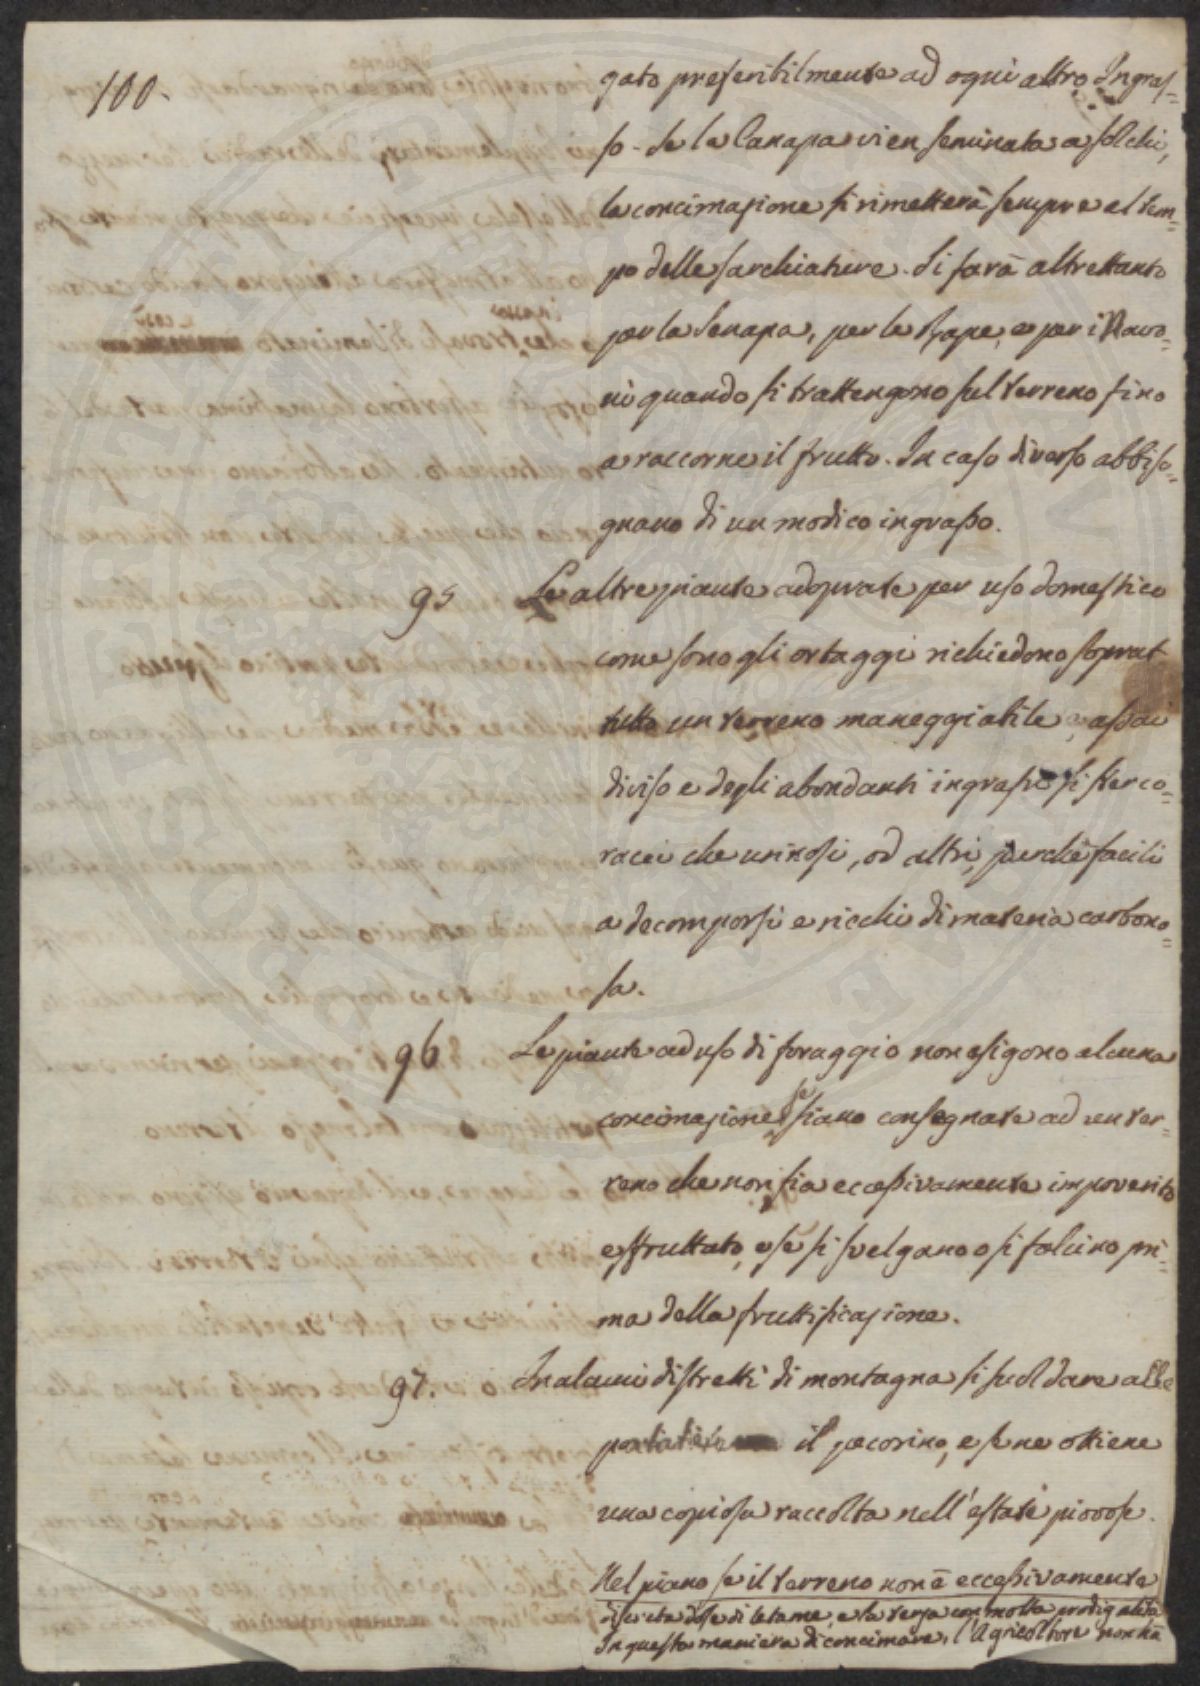 100.
gato preferibilmente ad ogni altro Ingras=
so. Se la Canapa vien seminata a solchi,
la concimazione si rimetterà sempre al tem=
po delle sarchiature. Si farà altrettanto
per la Senapa, per le Rape, e per i Navo=
ni quando si trattengono sul terreno fino
a raccorne il frutto. In caso diverso abbiso=
gnano di un modico ingrasso.
95 Le altre piante adoprate per uso domestico
come sono gli ortaggi richiedono soprat
tutto un terreno maneggiabile, assai
diviso e degli abondanti ingrassi sì sterco=
racei che urinosi, od altri, perchè facili
a decomporsi e ricchi di materia carbono=
sa.
96 Le piante ad uso di foraggio non esigono alcuna
concimazione se siano consegnate ad un ter=
reno che non sia eccessivamente impoverito
e sfruttato, e se si svelgano o si falcino pri=
ma della fruttificazione.
97. In alcuni distretti di montagna si suol dare alle
il pecorino, e se ne ottiene
una copiosa raccolta nell'estati piovose.
Nel piano se il terreno non è eccessivamente
di letame, e la versa con molta prodigalità
In questa maniera di concimare, l'Agricoltore non hà